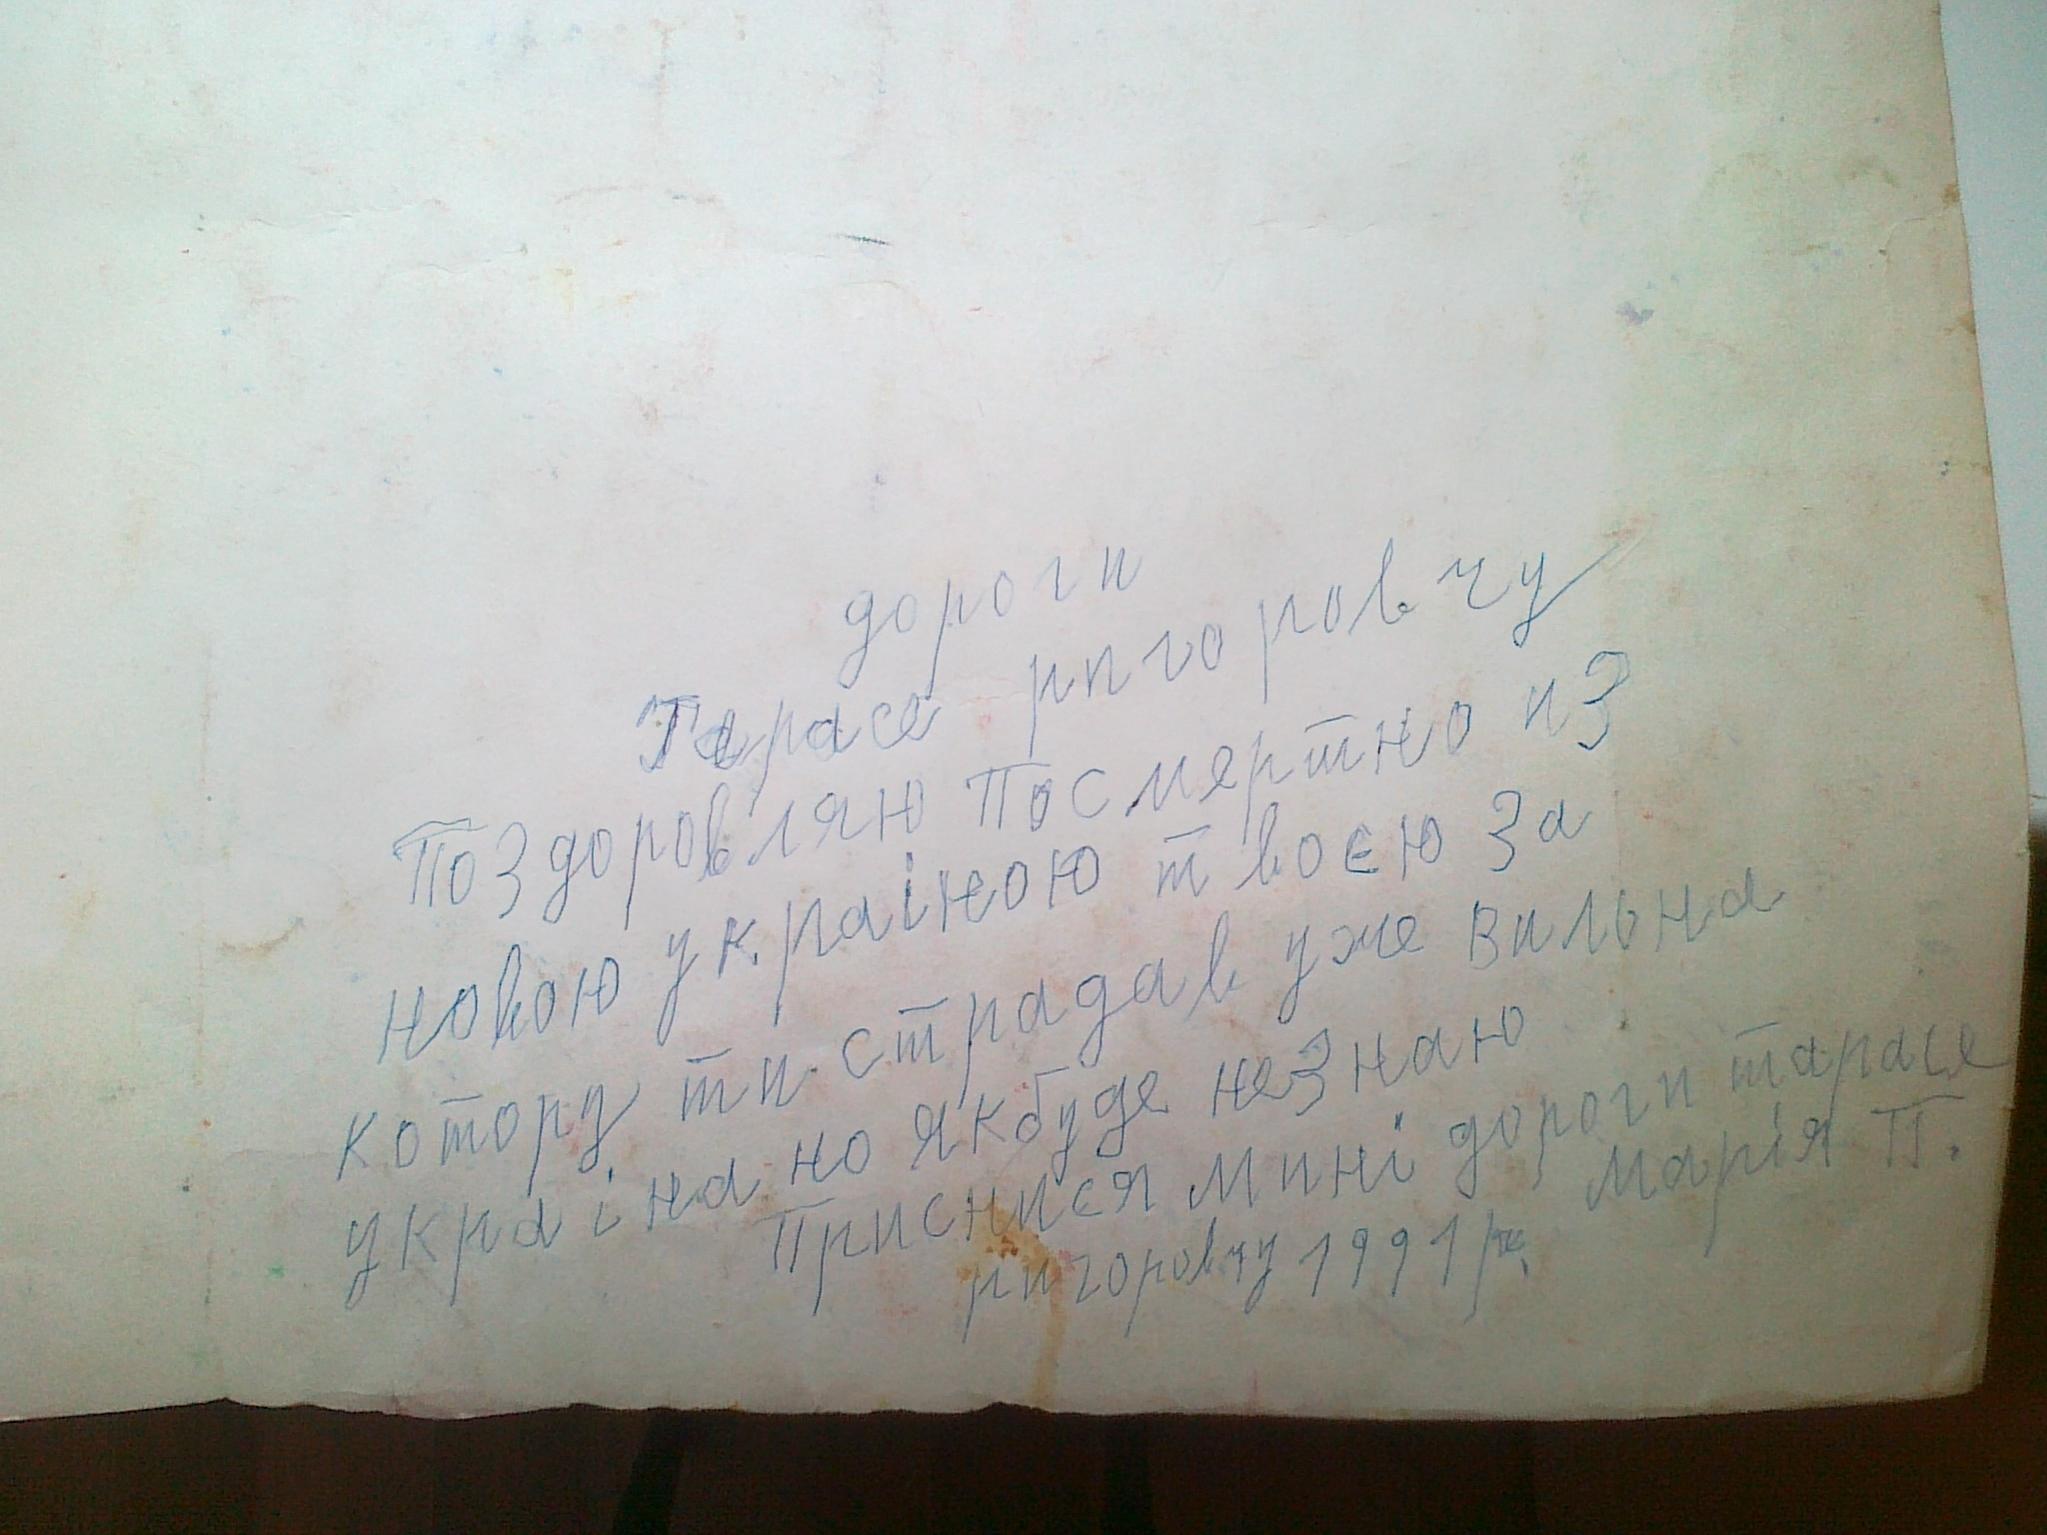 дороги
Тарасе ригоровчу
Поздоровляю Посмертно из
новою украіною твоєю за
котору ти страдав уже вильна
украіна но якбуде незнаю
Приснися мині дороги тарасе
ригоровчу 1991 р. марія П.